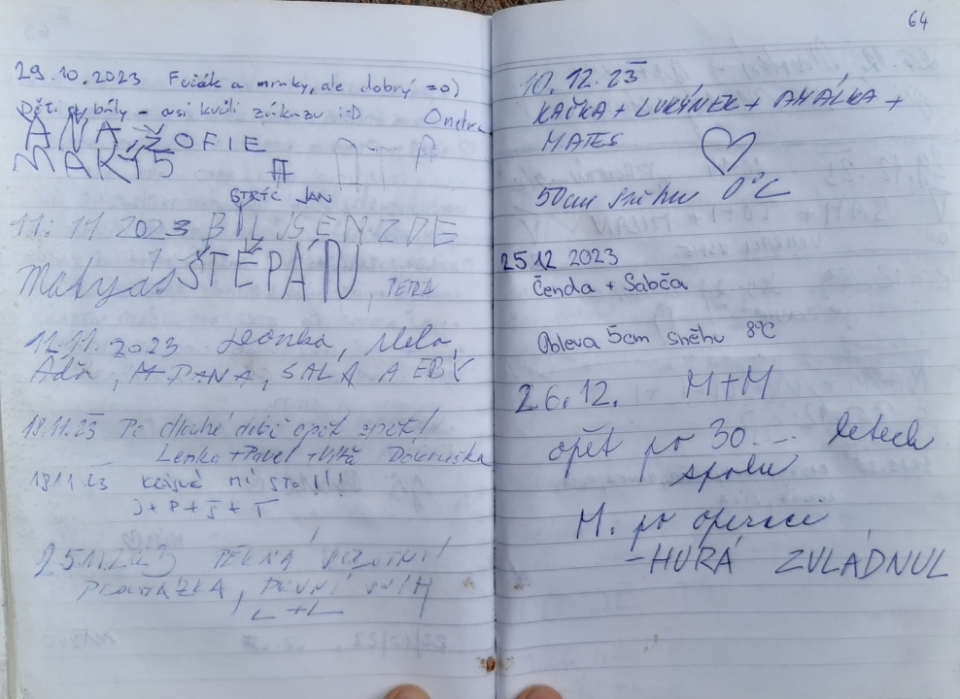 29.10.2023 Fučák a mraky, ale dobrý =o)
Děti by byly – asi kvůli zákazu :-D Ondra
ANA, ŽOFIE
STRÝC JAN
11.11.2023 BYL JSEM ZDE
Matyáš ŠTĚPÁN, PETRA
12.11.2023 Leonka, Mela,
SALA A EBY
18.11.23 Po dlouhé době opět zpět!
Lenka + Pavel + Dobruška
18.11.23 Krásné místo!!!
J + P + J + T
25.11.2023 PĚKNÁ
PROCHÁZKA, PRVNÍ SNÍH
L+L
64
10.12.23
KAČKA + LUKÁNEK + AMÁLKA +
MATES
50cm sněhu 0°C
25 12 2023
Čenda + Sabča
Obleva 5cm sněhu 8°C
26.12. M+M
opět po 30... letech
spolu
M. po operaci
-HURÁ ZVLÁDNUL